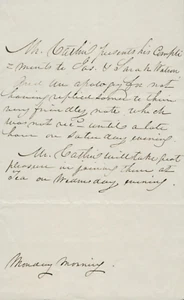 Mr. Catlin presents his Compli
ments to Jas. & Sarah
And an apology for not
having replied sooner to their
very friendly note which
was not recd until a late
hour on Saturday evening
Mr. Catlin will take great
pleasure in joining them at
Tea on Wednesday evening.
Monday Morning.